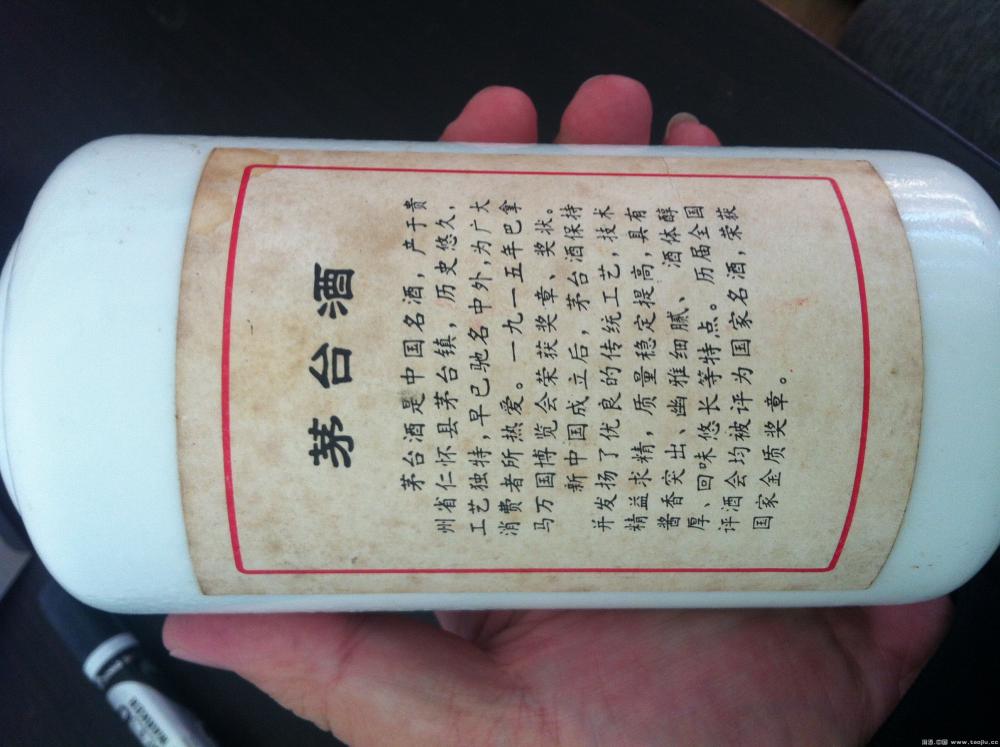 茅台酒
茅台酒是中国名酒，产于贵
州省仁怀县茅台镇，历史悠久，
工艺独特，早已驰名中外，为广大
消费者所热爱。一九一五年巴拿
马万国博览会荣获奖章、奖状。
新中国成立后，茅台酒保持
并发扬了优良的传统工艺，技术
精益求精，质量稳定提高，具有
酱香突出、幽雅细腻、酒体醇
厚、回味悠长等特点。历届全国
评酒会均被评为国家名酒，荣获
国家金质奖章。
www.taojiu.cc